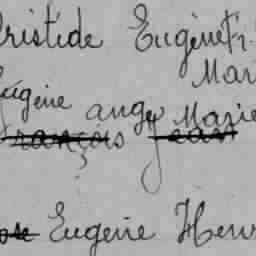 Aristide Eugène Fr.
Mari
Eugène ange Marie
François Jean
Eugenie Henr